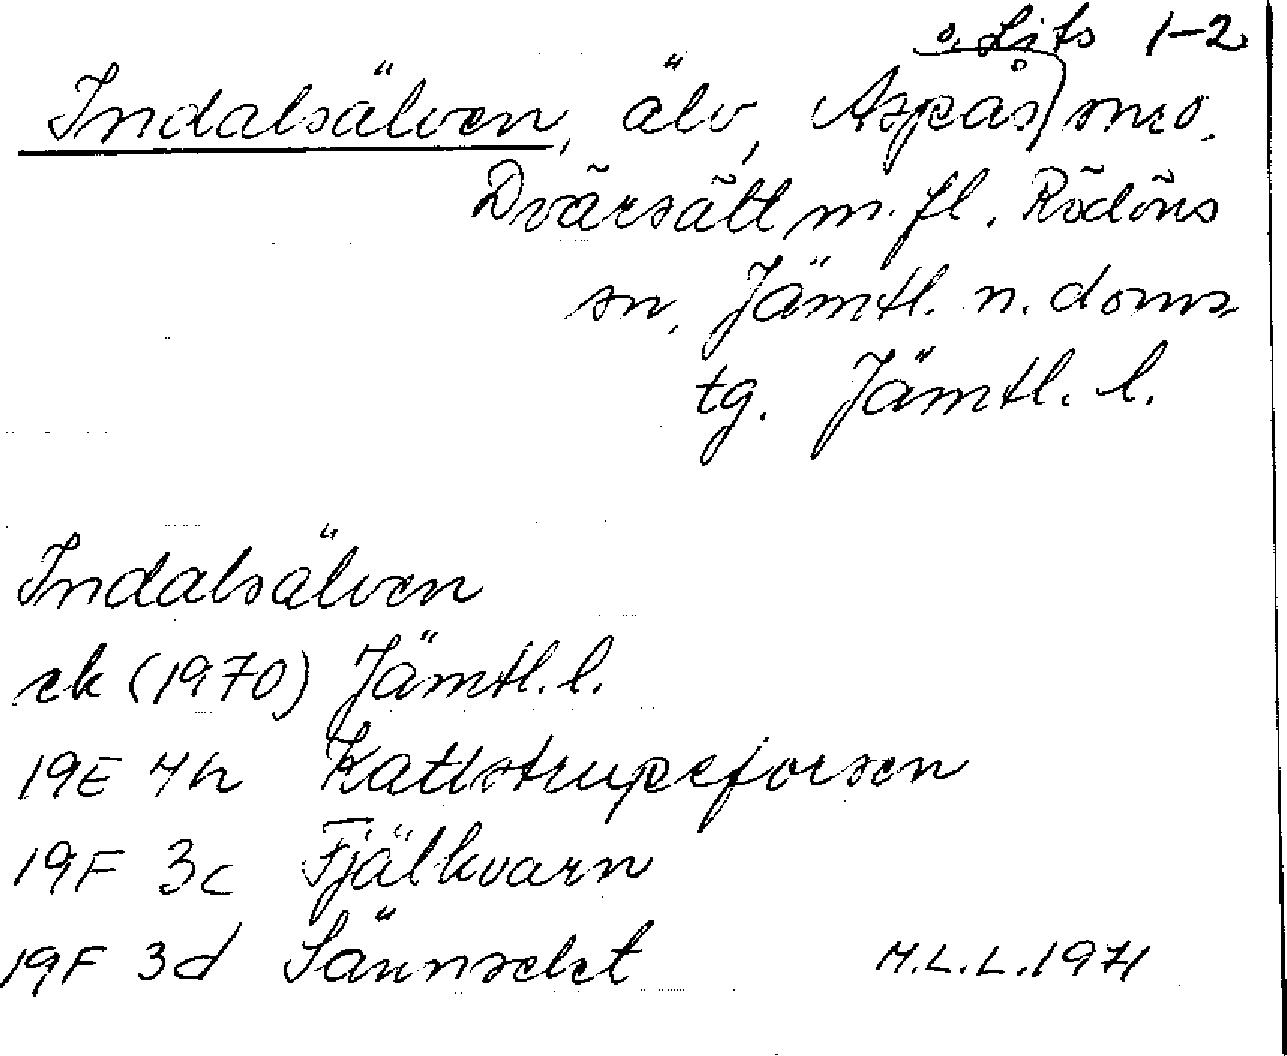 o. Lits 1-2
Indalsälven, älv, Aspås smo.
Dvärsätt m.fl. Rödöns
sn, Jämtl. n. doms.
tg. Jämtl. l.
Indalsälven
ek (1970) Jämtl. l.
19E 4h Kattstrupeforsen
19F 3c Fjälkvarn
19F 3d
M.L.L. 1971